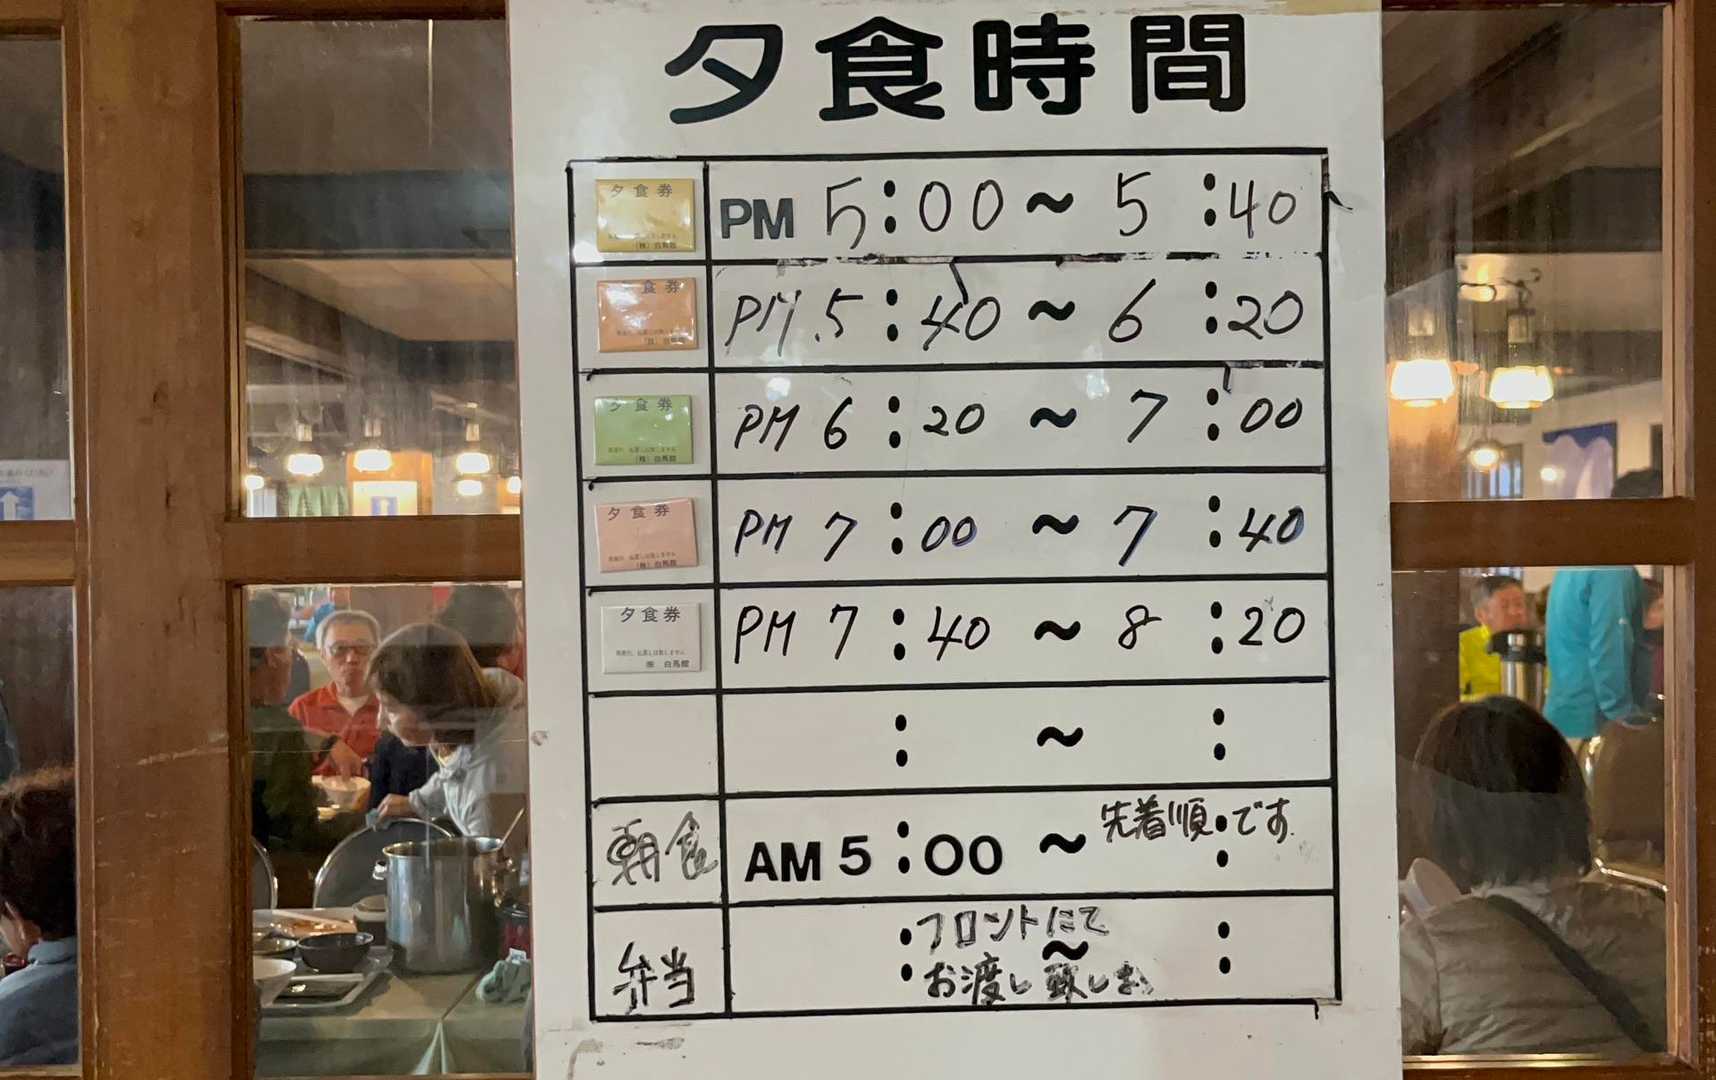 夕食時間
夕食券
(株)白馬館
PM 5:00 ~ 5:40
食券
PM 5:40 ~ 6:20
夕食券
(株)白馬館
PM 6:20 ~ 7:00
夕食券
(株)白馬館
PM 7:00 ~ 7:40
夕食券
㈱ 白馬館
PM 7:40 ~ 8:20
: ~ :
朝食 AM 5:00 ~ 先着順:です
弁当 : フロントにて ~ :
お渡し致しま